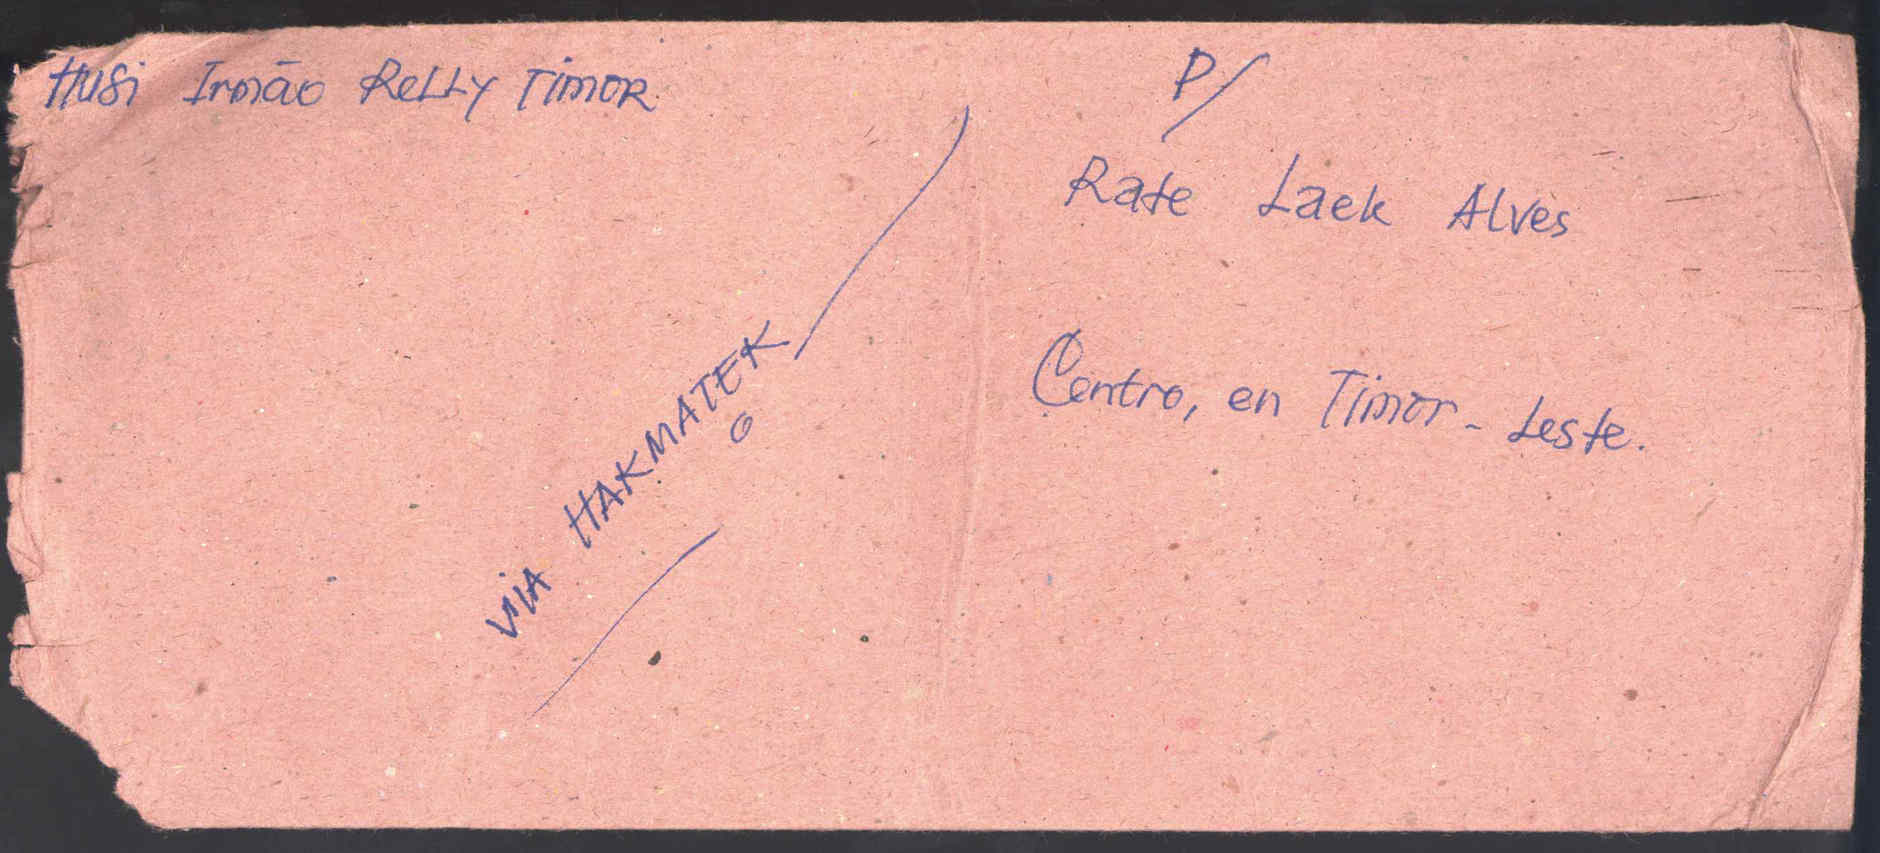 Husi Irmão Relly Timor
P/
Rate Laek Alves
Centro, en Timor-Leste.
VIA HAKMATEK